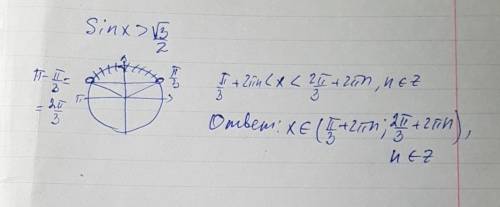 Sinx > √3/2
π - π/3 =
= 2π/3
π/3
π
π/3 + 2πn < x < 2π/3 + 2πn, n ∈ z
Ответ: x ∈ (π/3 + 2πn; 2π/3 + 2πn),
n ∈ z